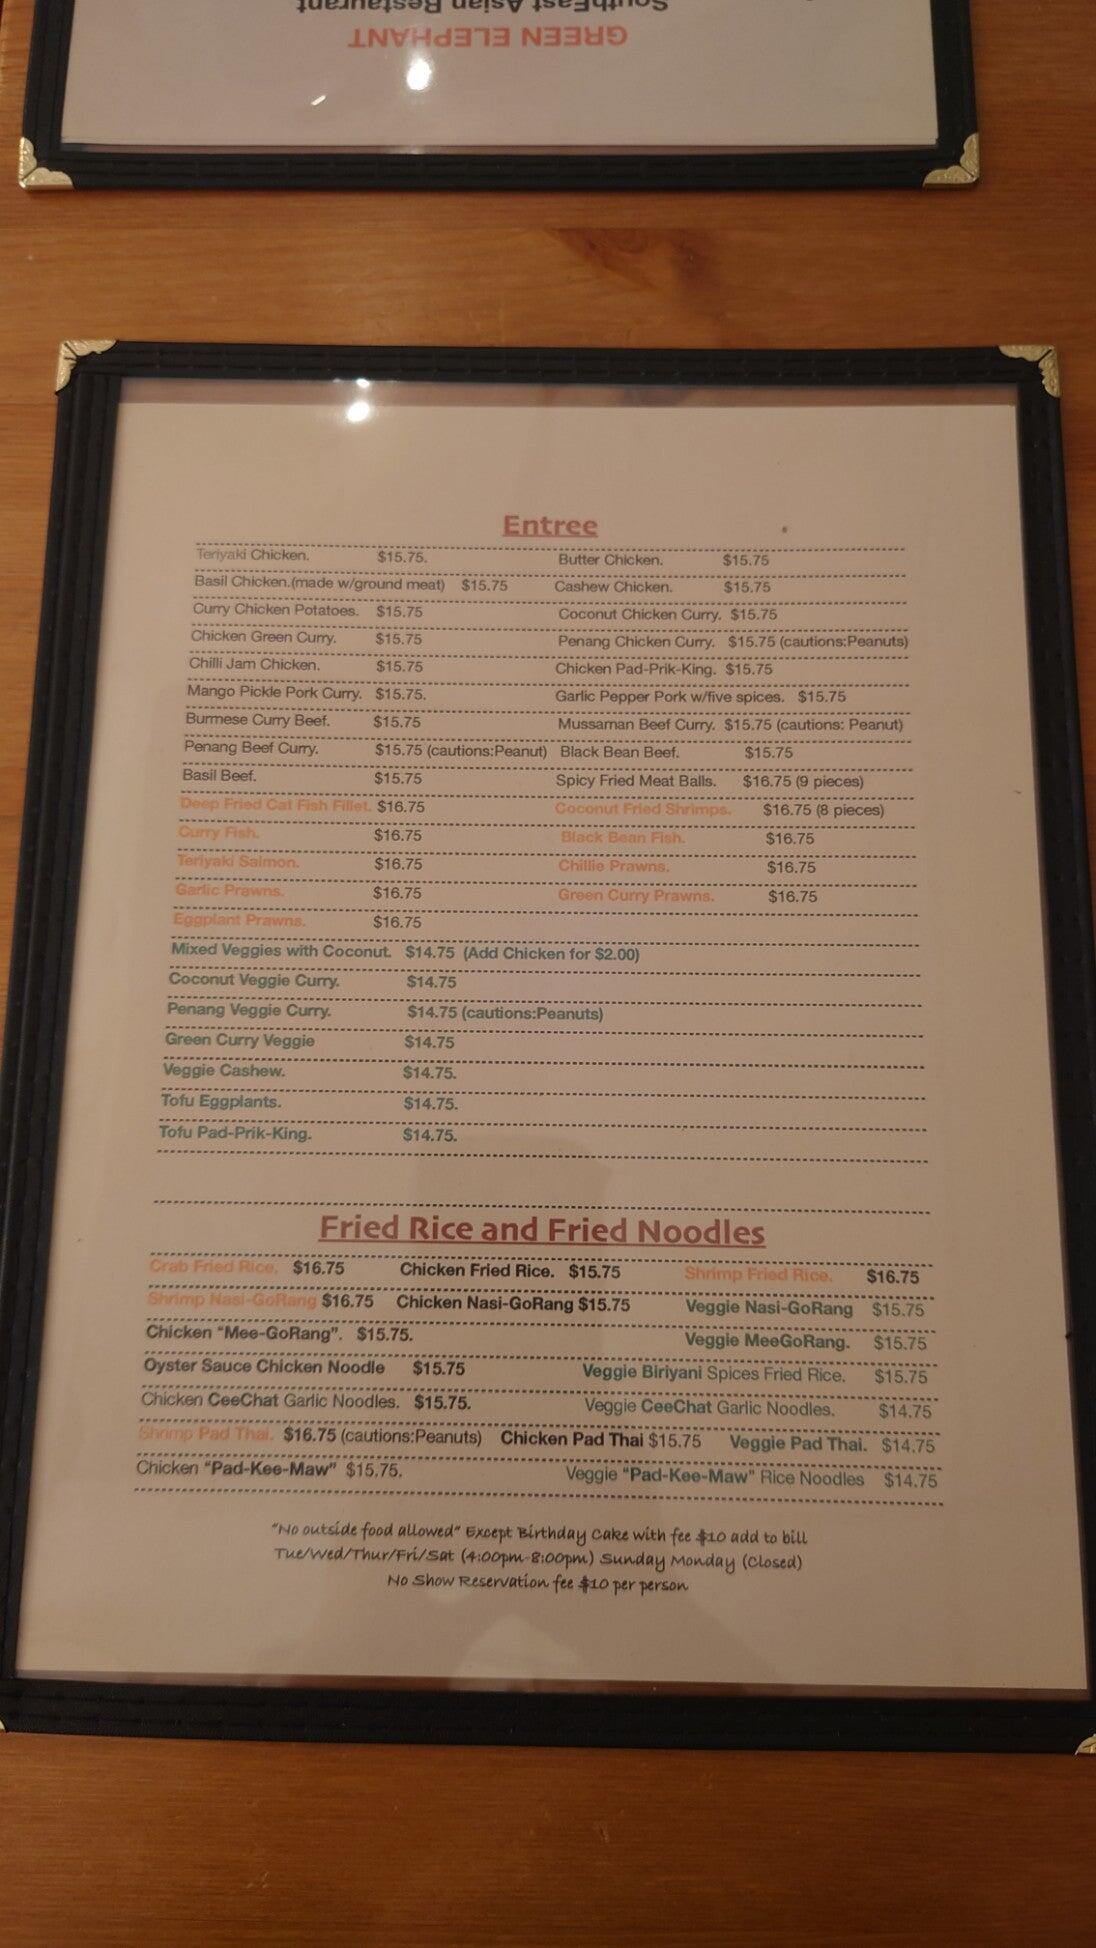 SouthEast Asian Restaurant
GREEN ELEPHANT
Entree
Teriyaki Chicken. $15.75. Butter Chicken. $15.75
Basil Chicken.(made w/ground meat) $15.75 Cashew Chicken. $15.75
Curry Chicken Potatoes. $15.75 Coconut Chicken Curry. $15.75
Chicken Green Curry. $15.75 Penang Chicken Curry. $15.75 (cautions:Peanuts)
Chilli Jam Chicken. $15.75 Chicken Pad-Prik-King. $15.75
Mango Pickle Pork Curry. $15.75. Garlic Pepper Pork w/five spices. $15.75
Burmese Curry Beef. $15.75 Mussaman Beef Curry. $15.75 (cautions: Peanut)
Penang Beef Curry. $15.75 (cautions:Peanut) Black Bean Beef. $15.75
Basil Beef. $15.75 Spicy Fried Meat Balls. $16.75 (9 pieces)
Deep Fried Cat Fish Fillet. $16.75 Coconut Fried Shrimps. $16.75 (8 pieces)
Curry Fish. $16.75 Black Bean Fish. $16.75
Teriyaki Salmon. $16.75 Chillie Prawns. $16.75
Garlic Prawns. $16.75 Green Curry Prawns. $16.75
Eggplant Prawns. $16.75
Mixed Veggies with Coconut. $14.75 (Add Chicken for $2.00)
Coconut Veggie Curry. $14.75
Penang Veggie Curry. $14.75 (cautions:Peanuts)
Green Curry Veggie $14.75
Veggie Cashew. $14.75.
Tofu Eggplants. $14.75.
Tofu Pad-Prik-King. $14.75.
Fried Rice and Fried Noodles
Crab Fried Rice. $16.75 Chicken Fried Rice. $15.75 Shrimp Fried Rice. $16.75
Shrimp Nasi-GoRang $16.75 Chicken Nasi-GoRang $15.75 Veggie Nasi-GoRang $15.75
Chicken “Mee-GoRang”. $15.75. Veggie MeeGoRang. $15.75
Oyster Sauce Chicken Noodle $15.75 Veggie Biriyani Spices Fried Rice. $15.75
Chicken CeeChat Garlic Noodles. $15.75. Veggie CeeChat Garlic Noodles. $14.75
Shrimp Pad Thai. $16.75 (cautions:Peanuts) Chicken Pad Thai $15.75 Veggie Pad Thai. $14.75
Chicken “Pad-Kee-Maw” $15.75. Veggie “Pad-Kee-Maw” Rice Noodles $14.75
"No outside food allowed" Except Birthday Cake with fee $10 add to bill
Tue/Wed/Thur/Fri/Sat (4:00pm-8:00pm) Sunday Monday (Closed)
No Show Reservation fee $10 per person